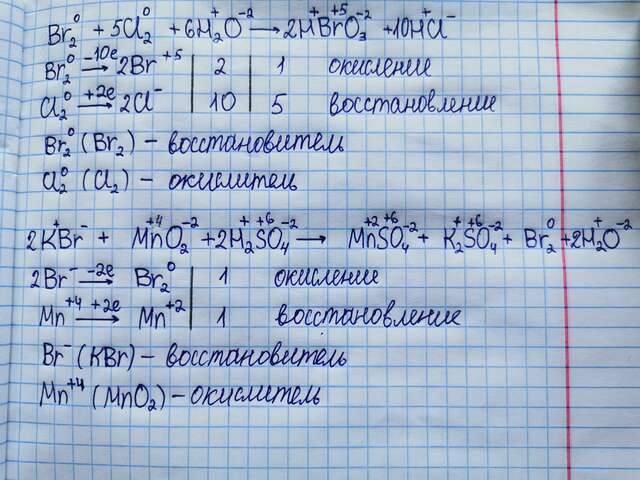 Br₂⁰ + 5Cl₂⁰ + 6H₂⁺O⁻² → 2H⁺Br⁺⁵O₃⁻² + 10H⁺Cl⁻
Br₂⁰ –10e→ 2Br⁺⁵ | 2 | 1 окисление
Cl₂⁰ +2e→ 2Cl⁻ | 10 | 5 восстановление
Br₂⁰ (Br₂) – восстановитель
Cl₂⁰ (Cl₂) – окислитель
2K⁺Br⁻ + Mn⁺⁴O₂⁻² + 2H₂⁺S⁺⁶O₄⁻² → Mn⁺²S⁺⁶O₄⁻² + K₂⁺S⁺⁶O₄⁻² + Br₂⁰ + 2H₂⁺O⁻²
2Br⁻ –2e→ Br₂⁰ | 1 окисление
Mn⁺⁴ +2e→ Mn⁺² | 1 восстановление
Br⁻ (KBr) – восстановитель
Mn⁺⁴ (MnO₂) – окислитель